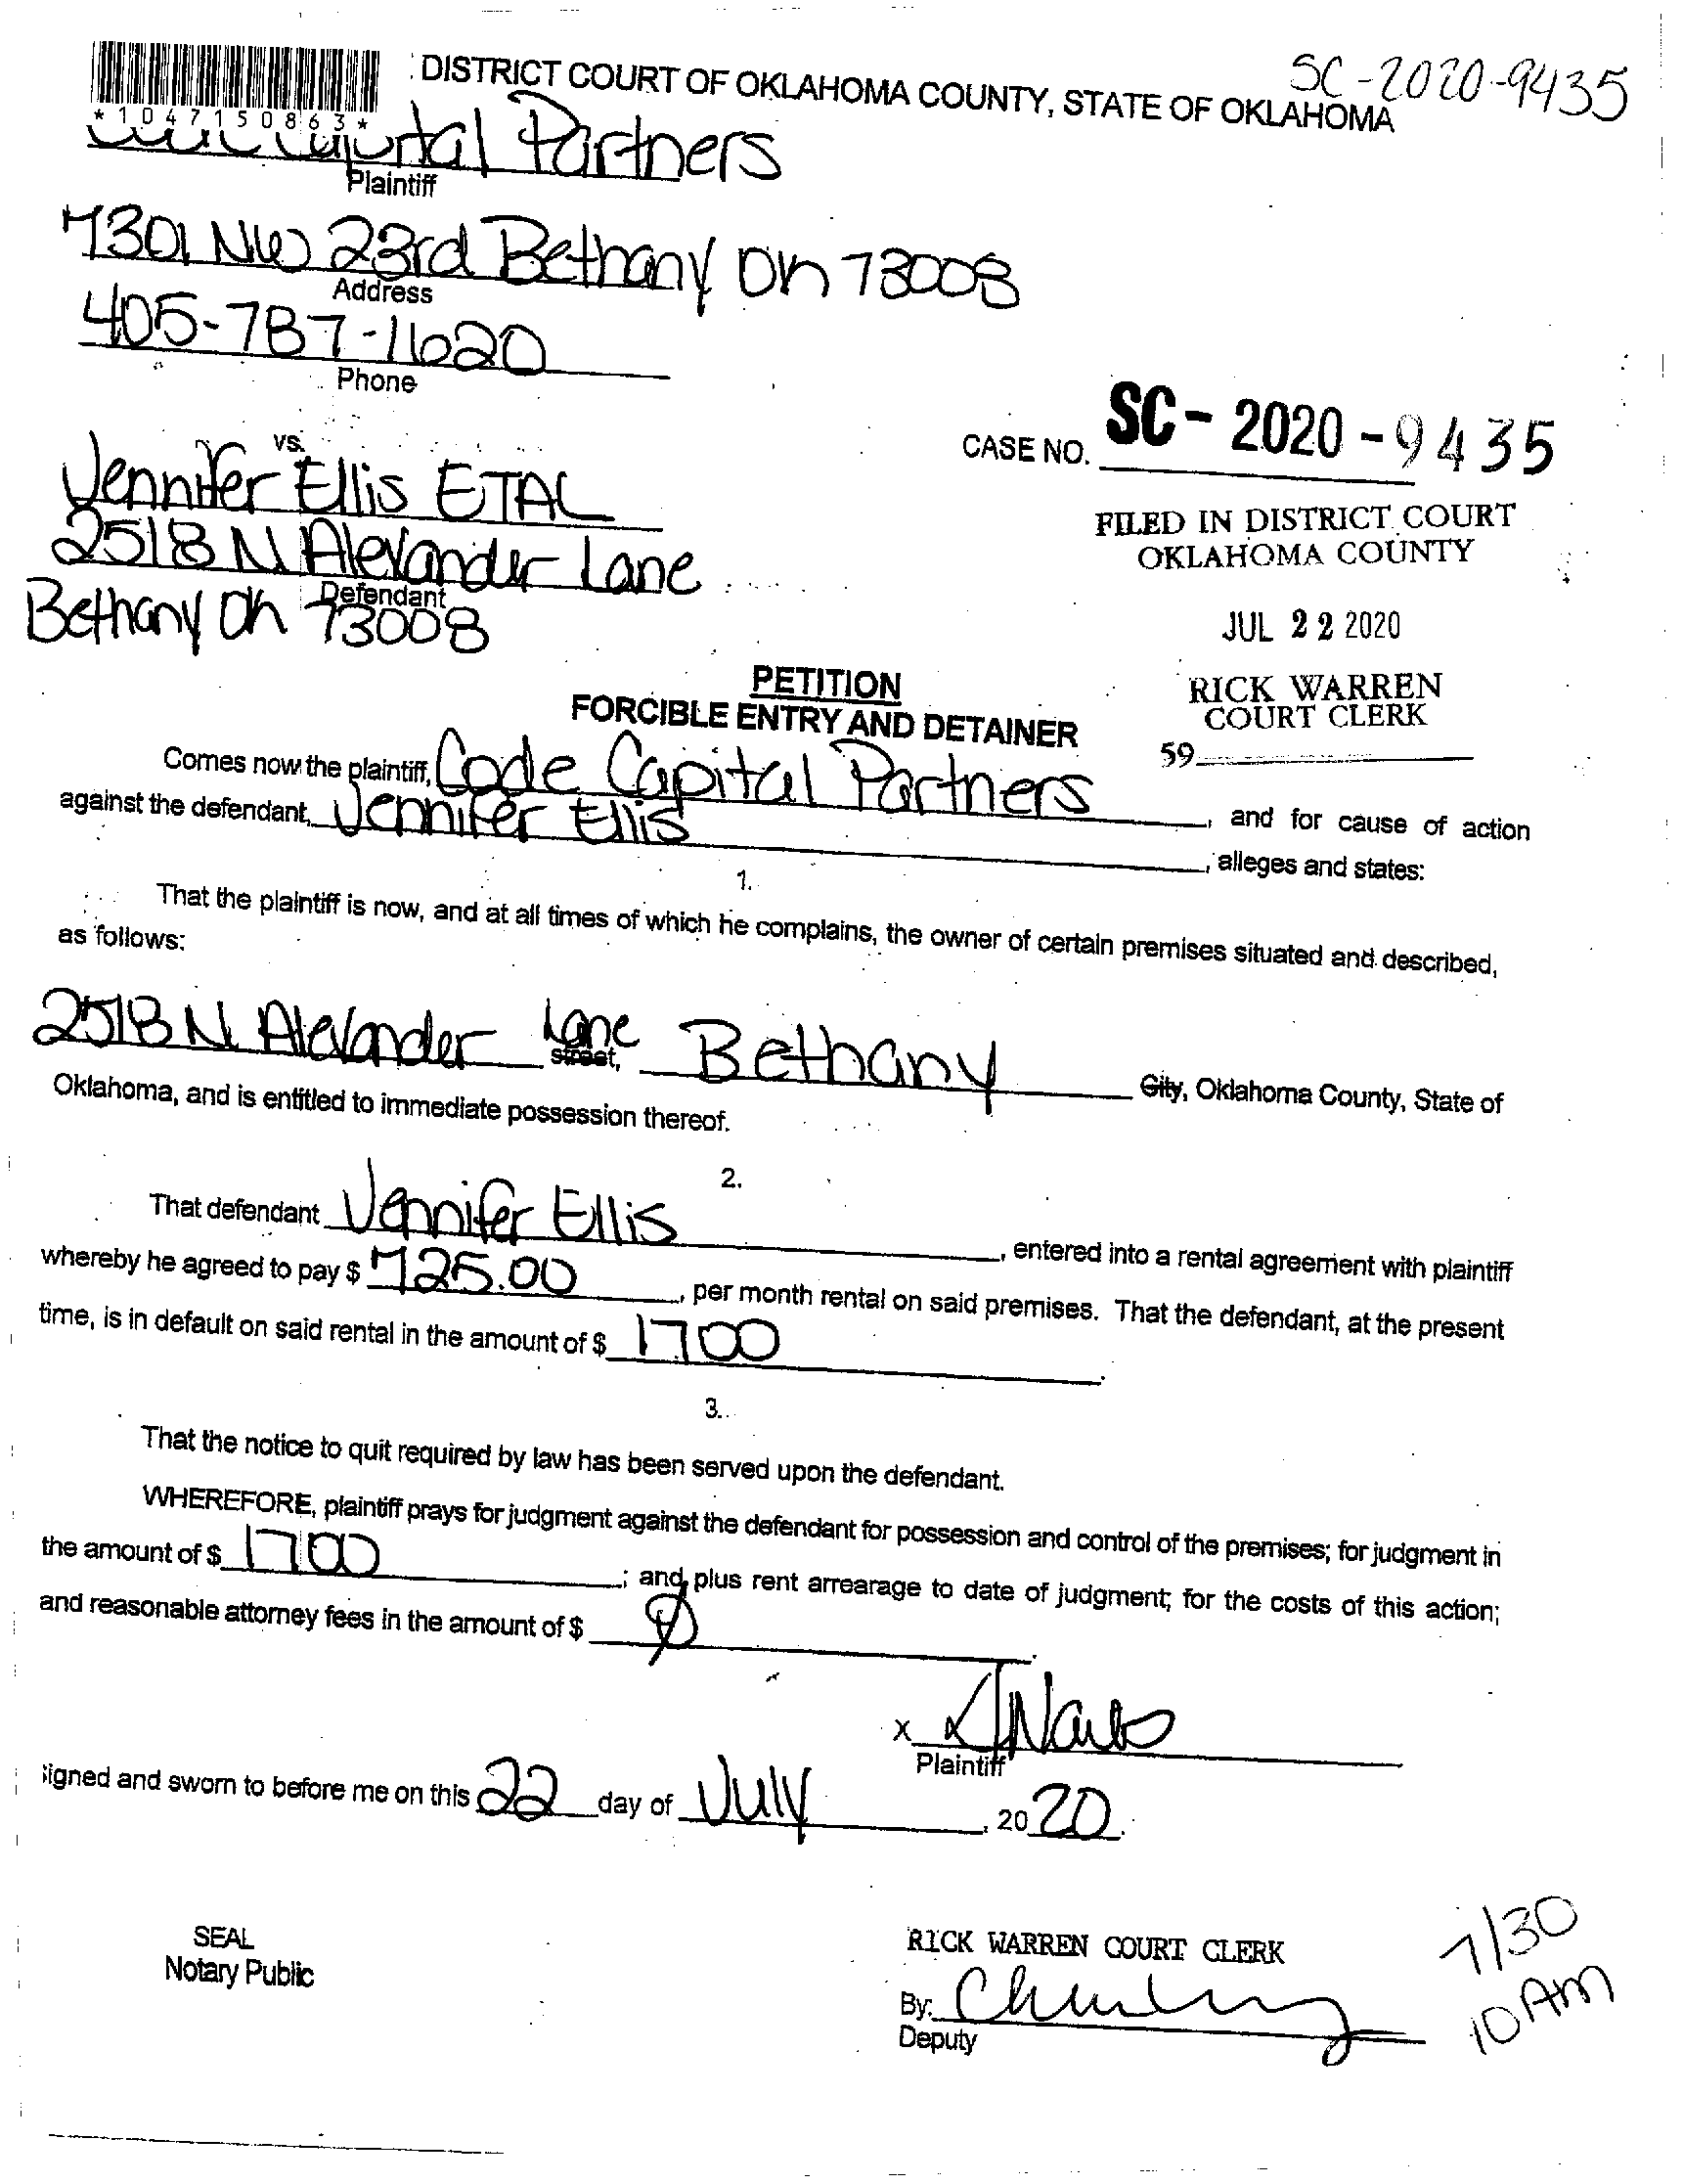 SC-2020-9435
DISTRICT COURT OF OKLAHOMA COUNTY, STATE OF OKLAHOMA
*1047150863*
Capital Partners
Plaintiff
7301 NW 23rd Bethany Ok 73008
Address
405-787-1620
Phone
vs.
CASE NO. SC-2020-9435
Jennifer Ellis ETAL
2518 N Alexander Lane
Defendant
Bethany Ok 73008
FILED IN DISTRICT COURT
OKLAHOMA COUNTY
JUL 22 2020
RICK WARREN
COURT CLERK
59
PETITION
FORCIBLE ENTRY AND DETAINER
Comes now the plaintiff, Code Capital Partners, and for cause of action
against the defendant, Jennifer Ellis, alleges and states:
1.
That the plaintiff is now, and at all times of which he complains, the owner of certain premises situated and described,
as follows:
2518 N Alexander Lane street, Bethany City, Oklahoma County, State of
Oklahoma, and is entitled to immediate possession thereof.
2.
That defendant Jennifer Ellis, entered into a rental agreement with plaintiff
whereby he agreed to pay $ 725.00, per month rental on said premises. That the defendant, at the present
time, is in default on said rental in the amount of $ 1700.
3.
That the notice to quit required by law has been served upon the defendant.
WHEREFORE, plaintiff prays for judgment against the defendant for possession and control of the premises; for judgment in
the amount of $ 1700; and, plus rent arrearage to date of judgment; for the costs of this action;
and reasonable attorney fees in the amount of $ Ø.
X
Plaintiff
igned and sworn to before me on this 22 day of July, 2020.
SEAL
Notary Public
RICK WARREN COURT CLERK
By:
Deputy
7/30
10 AM